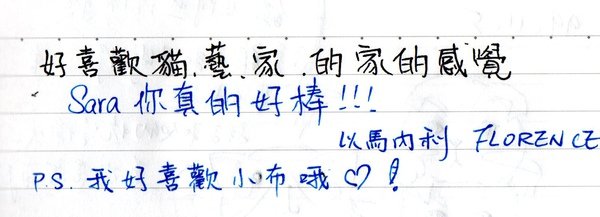 好喜歡貓.藝.家.的家的感覺
Sara 你真的好棒!!!
以馬內利 FLORENCE
P.S. 我好喜歡小布哦♡!